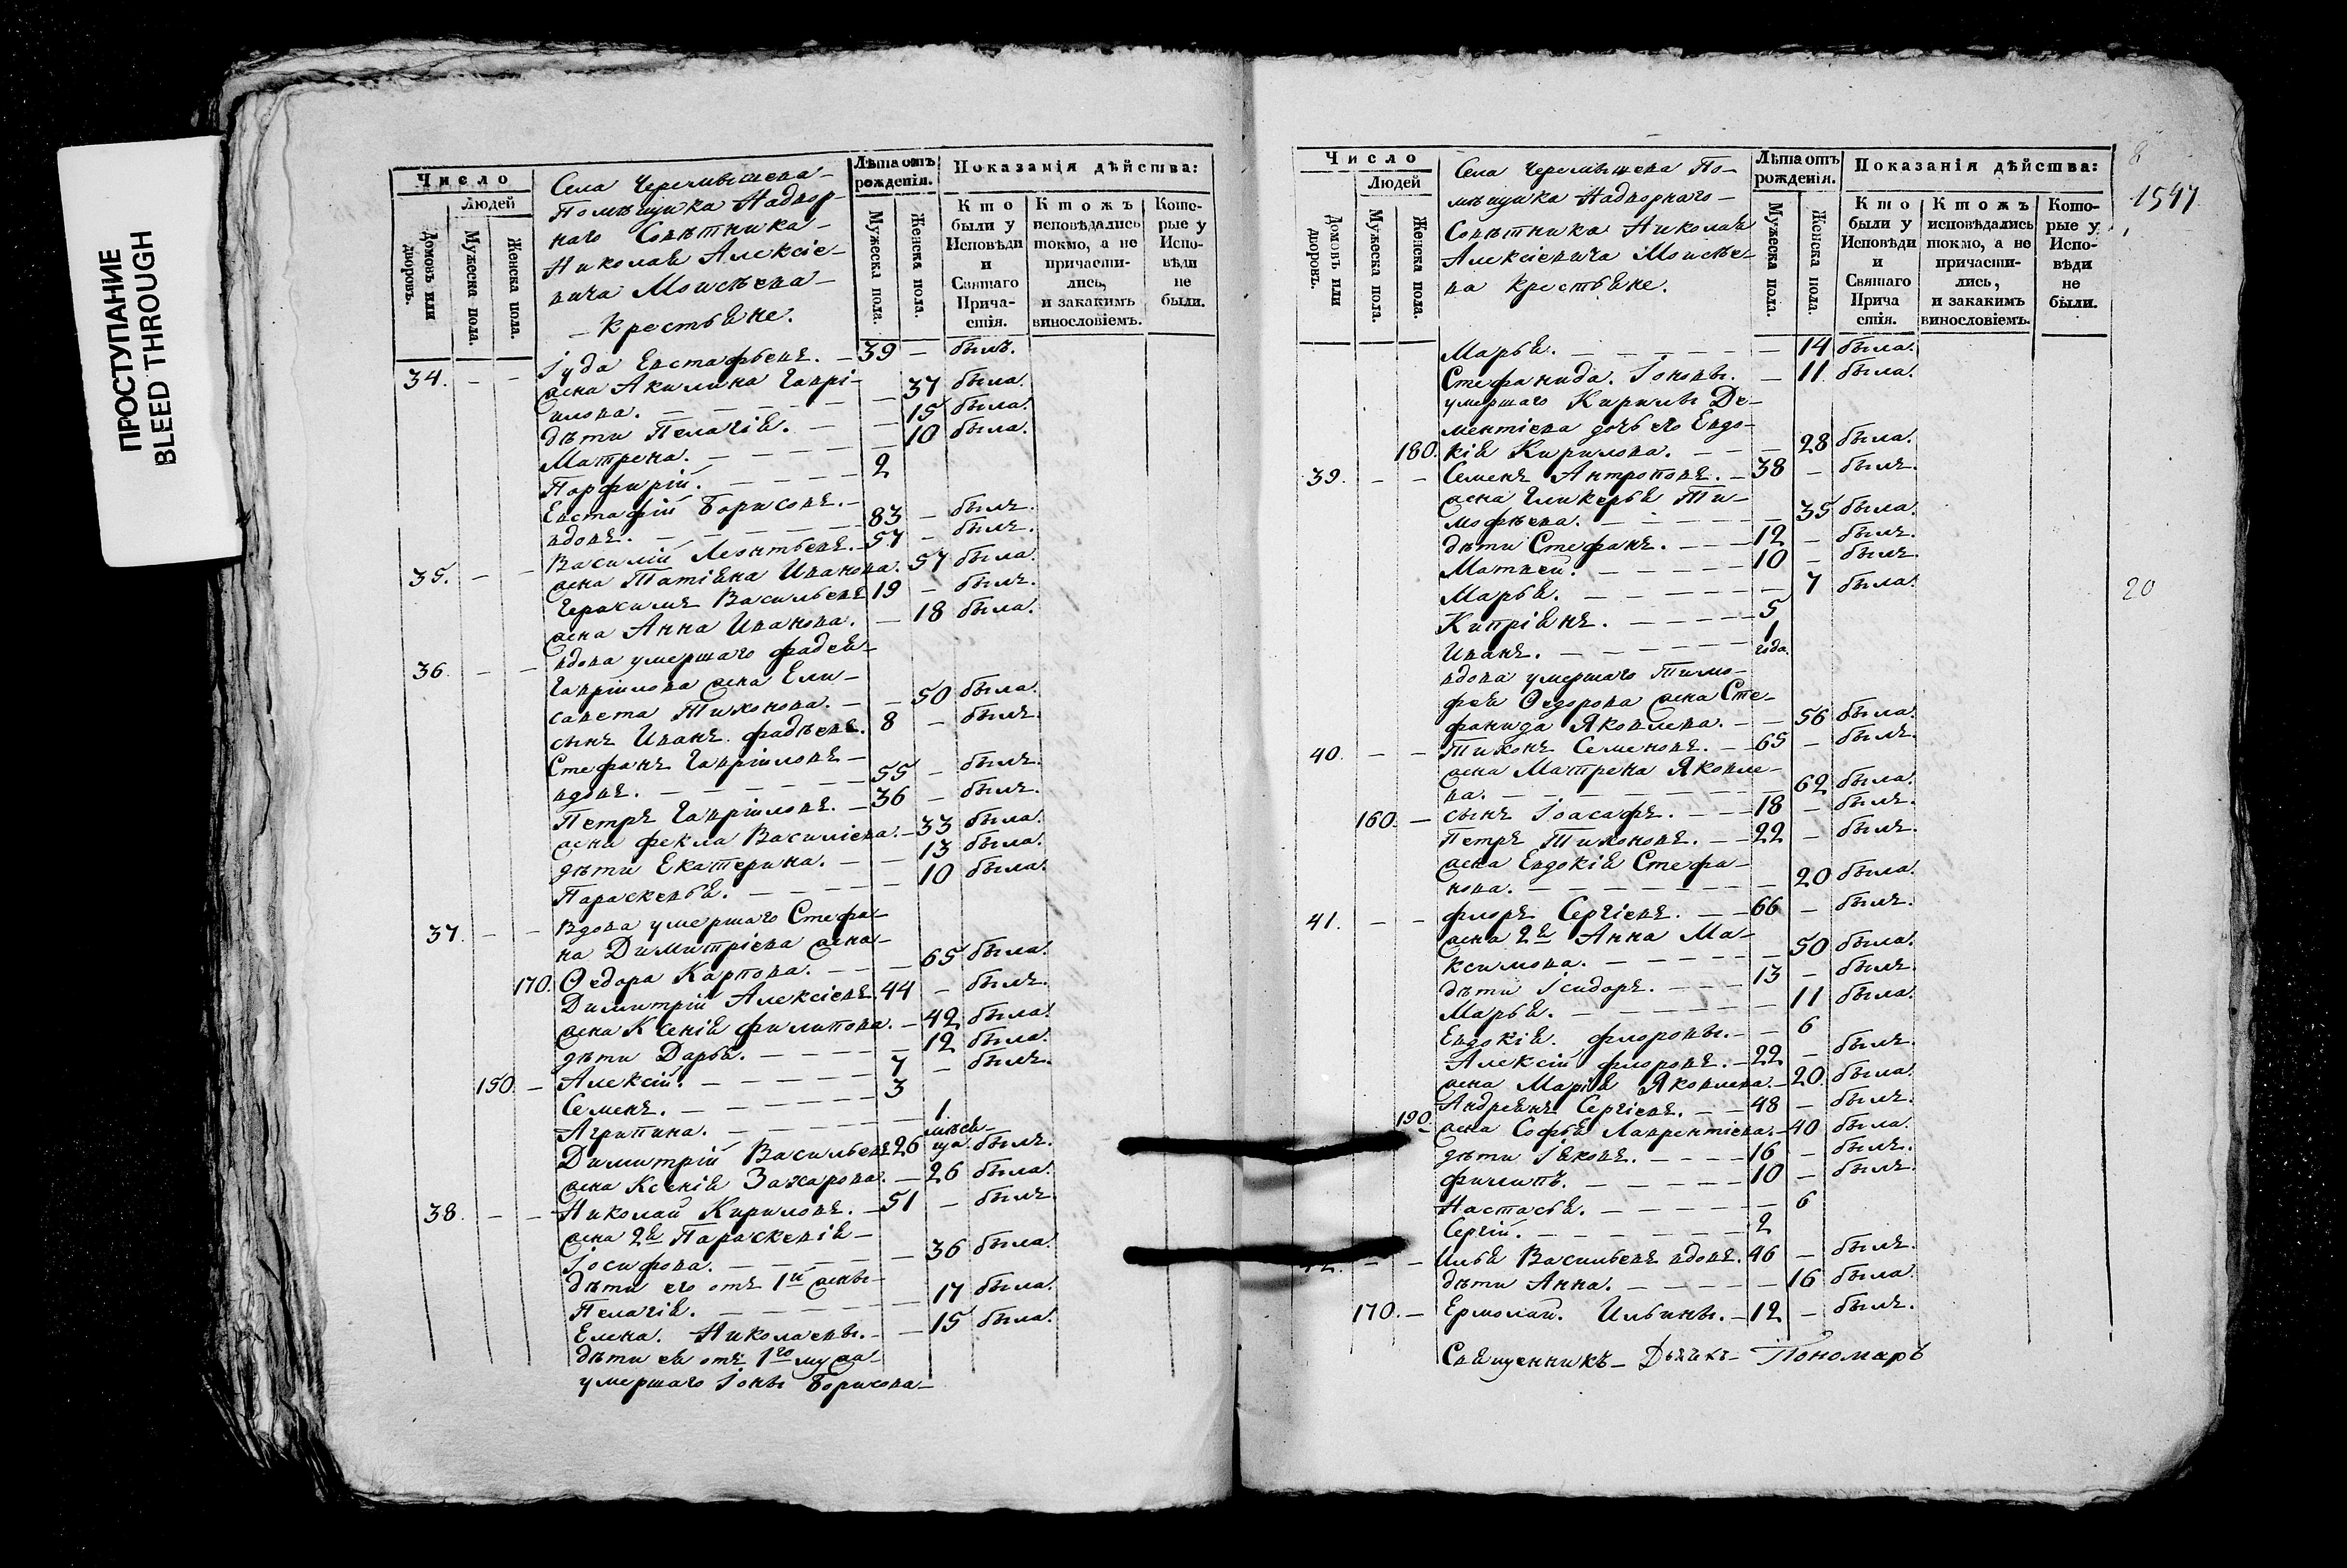 ПРОСТУПАНИЕ
BLEED THROUGH
Число
Людей
Домовъ или дворовъ.
Мужеска пола.
Женска пола.
Села Черемышева
Помѣщика Надвор-
наго Совѣтника
Николая Алексіе-
вича Моисѣева
Крестьяне.
Лѣта отъ рожденія.
Мужеска пола.
Женска пола.
Показанія дѣйства:
Кто были у Исповѣди и Святаго Прича-стія.
Ктожъ исповѣдались токмо, а не причасти-лись, и закакимъ винословіемъ.
Кото-рые у Испо-вѣди не были.
34. – – Іуда Евстафьевъ. – 39 – былъ.
жена Акилина Гаврі-
илова. – – 37 была.
дѣти Пелагія. – – 15 была.
Матрена. – – 10 была.
Порфирій. – 2
Евстафій Борисовъ. –
вдовъ. – 83 – былъ.
35. – – Василій Леонтьевъ. – 57 – былъ.
жена Татіяна Иванова. 57 была.
Герасимъ Васильевъ 19 – былъ.
жена Анна Иванова. – 18 была.
36. – – вдова умершаго Фадея
Гавріилова жена Ели-
савета Тихонова. – – 50 была.
сынъ Иванъ Фадѣевъ. 8 – былъ.
Стефанъ Гавріиловъ –
вдовъ. – 55 – былъ.
Петръ Гавріиловъ. – 36 – былъ.
жена Фекла Василіева. – 33 была.
дѣти Екатерина. – – 13 была.
Параскевья. – – 10 была.
37. – – Вдова умершаго Стефа-
на Димитріева жена
170. Ѳедора Карпова. – – 65 была.
Димитрій Алексіевъ. 44 – былъ.
жена Ксенія Филипова. – 42 была.
дѣти Дарья. – – 12 была.
150. – Алексій. – 7 – былъ.
Семенъ. – 3
Агрипина. – – 1. мѣсяца.
Димитрій Васильевъ 26 былъ.
жена Ксенія Захарова. – 26 была.
38. – – Николай Кириловъ. – 51 – былъ.
жена 2я Параскевія
Іосифова. – – 36 была.
дѣти его отъ 1й жены
Пелагія. – – 17 была.
Елена. Николаевы. – – 15 была.
дѣти ея отъ 1го мужа
умершаго Іоны Борисова
Число
Людей
Домовъ или дворовъ.
Мужеска пола.
Женска пола.
Села Черемышева По-
мѣщика Надворнаго
Совѣтника Николая
Алексіевича Моисѣе-
ва Крестьяне.
Лѣта отъ рожденія.
Мужеска пола.
Женска пола.
Показанія дѣйства:
Кто были у Исповѣди и Святаго Прича стія.
Ктожъ исповѣдались токмо, а не причасти-лись, и закакимъ винословіемъ.
Кото-рые у Испо-вѣди не были.
8
1547
Марья. – – 14 была.
Стефанида. Іоновы. – 11 была.
умершаго Кирилы Де-
ментіева дочь его Евдо-
180. кія Кирилова. – – 28 была.
39. – – Семенъ Антроповъ. – 38 – былъ.
жена Гликерья Ти-
мофѣева. – – 35 была.
дѣти Стефанъ. – 12 – былъ.
Матвей. – 10 – былъ.
Марья. – – 7 была.
20
Кипріянъ. – 5
Иванъ. – 1 года.
вдова умершаго Тимо-
фея Ѳедорова жена Сте-
фанида Яковлева. – – 56 была.
40. – – Тихонъ Семеновъ. – 65 – былъ.
жена Матрена Яковле-
ва. – – 62 была.
160. – сынъ Іоасафъ. – 18 – былъ.
Петръ Тихоновъ. – 22 – былъ.
жена Евдокія Стефа-
нова. – – 20 была.
41. – – Флоръ Сергіевъ. – 66 – былъ.
жена 2я Анна Ма-
ксимова. – – 50 была.
дѣти Ісидоръ. – 13 – былъ.
Марья. – – 11 была.
Евдокія. Флоровы. – – 6
Алексій Флоровъ. – 22 – былъ.
жена Марія Яковлева. – 20. была.
Андреянъ Сергіевъ. – 48 – былъ.
190. жена Софья Лаврентіева. – 40 была.
дѣти Іяковъ. – 16 – былъ.
Филипъ. – 10 – былъ.
Настасья. – – 6
Сергій. – 2
42. – – Илья Васильевъ вдовъ. 46 – былъ.
дѣти Анна. – – 16 была.
170. – Ермолай. Ильины. – 12 – былъ.
Священникъ – Дьякъ – Пономарь